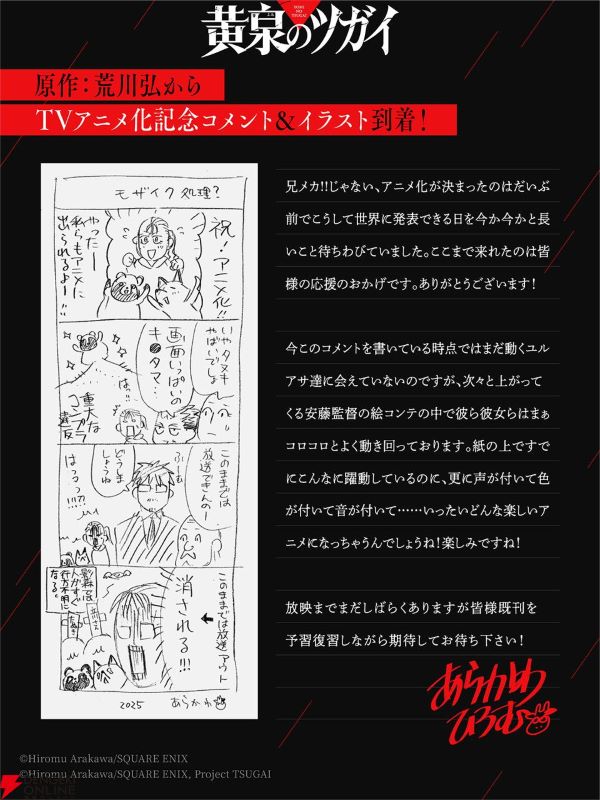 YOMI NO TSUGAI
黄泉のツガイ
原作：荒川弘から
TVアニメ化記念コメント&イラスト到着！
モザイク処理？
祝！アニメ化!!
やったー
私らもアニメに
出られるよー!!
いやタヌキ
やばいでしょ
画面いっぱいの
キ●タマ…
はっ!!
重大な
コンプラ
違反
このままでは
放送できんのー
ふーむ
どうしま
しょうね
はうるっ!!??
このままでは放送アウト
消される!!!
影森家は
人がすぐ
行方不明に
なる。
2025 あらかわ
兄メカ!!じゃない、アニメ化が決まったのはだいぶ
前でこうして世界に発表できる日を今か今かと長
いこと待ちわびていました。ここまで来れたのは皆
様の応援のおかげです。ありがとうございます！
今このコメントを書いている時点ではまだ動くユル
アサ達に会えていないのですが、次々と上がって
くる安藤監督の絵コンテの中で彼ら彼女らはまぁ
コロコロとよく動き回っております。紙の上ですで
にこんなに躍動しているのに、更に声が付いて色
が付いて音が付いて……いったいどんな楽しいア
ニメになっちゃうんでしょうね！楽しみですね！
放映までまだしばらくありますが皆様既刊を
予習復習しながら期待してお待ち下さい！
あらかわ
ひろむ
©Hiromu Arakawa/SQUARE ENIX
©Hiromu Arakawa/SQUARE ENIX, Project TSUGAI
DENGEKI
ONLINE